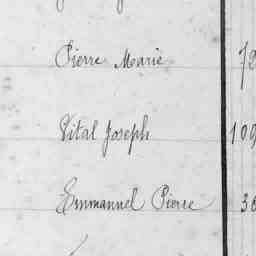 Pierre Marie 72
Vital Joseph 109
Emmanuel Pierre